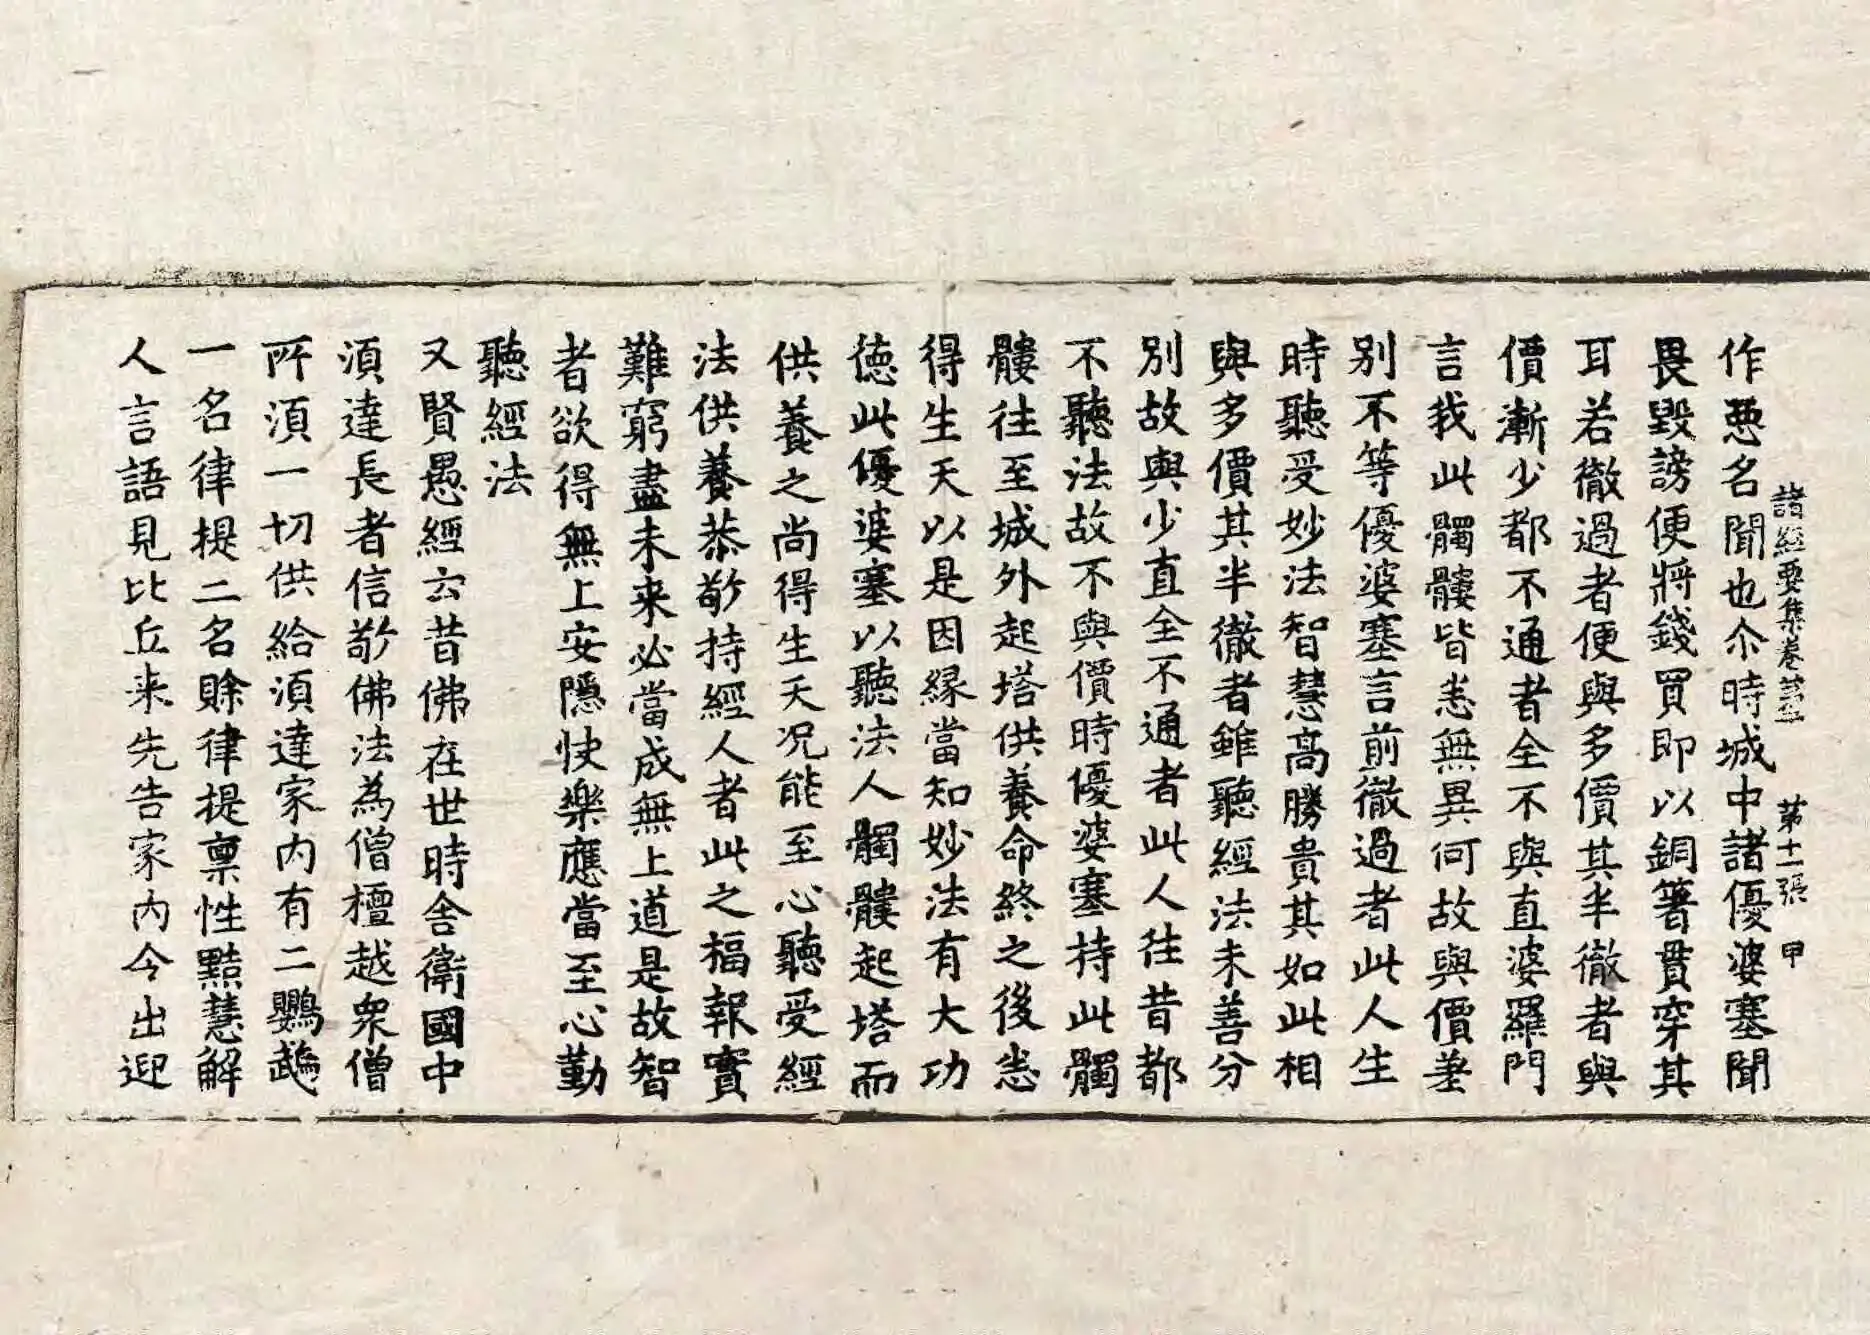 諸經要集卷第二　第十一張　甲
作惡名聞也尒時城中諸優婆塞聞
畏毀謗便將錢買即以銅箸貫穿其
耳若徹過者便與多價其半徹者與
價漸少都不通者全不與直婆羅門
言我此髑髏皆悉無異何故與價差
別不等優婆塞言前徹過者此人生
時聽受妙法智慧高勝貴其如此相
與多價其半徹者雖聽經法未善分
別故與少直全不通者此人往昔都
不聽法故不與價時優婆塞持此髑
髏往至城外起塔供養命終之後悉
得生天以是因緣當知妙法有大功
德此優婆塞以聽法人髑髏起塔而
供養之尚得生天况能至心聽受經
法供養恭敬持經人者此之福報實
難窮盡未来必當成無上道是故智
者欲得無上安隱快樂應當至心勤
聽經法
又賢愚經云昔佛在世時舍衛國中
湏達長者信敬佛法為僧檀越衆僧
所湏一切供給湏達家内有二鸚鵡
一名律提二名賒律提稟性黠慧解
人言語見比丘来先告家内令出迎